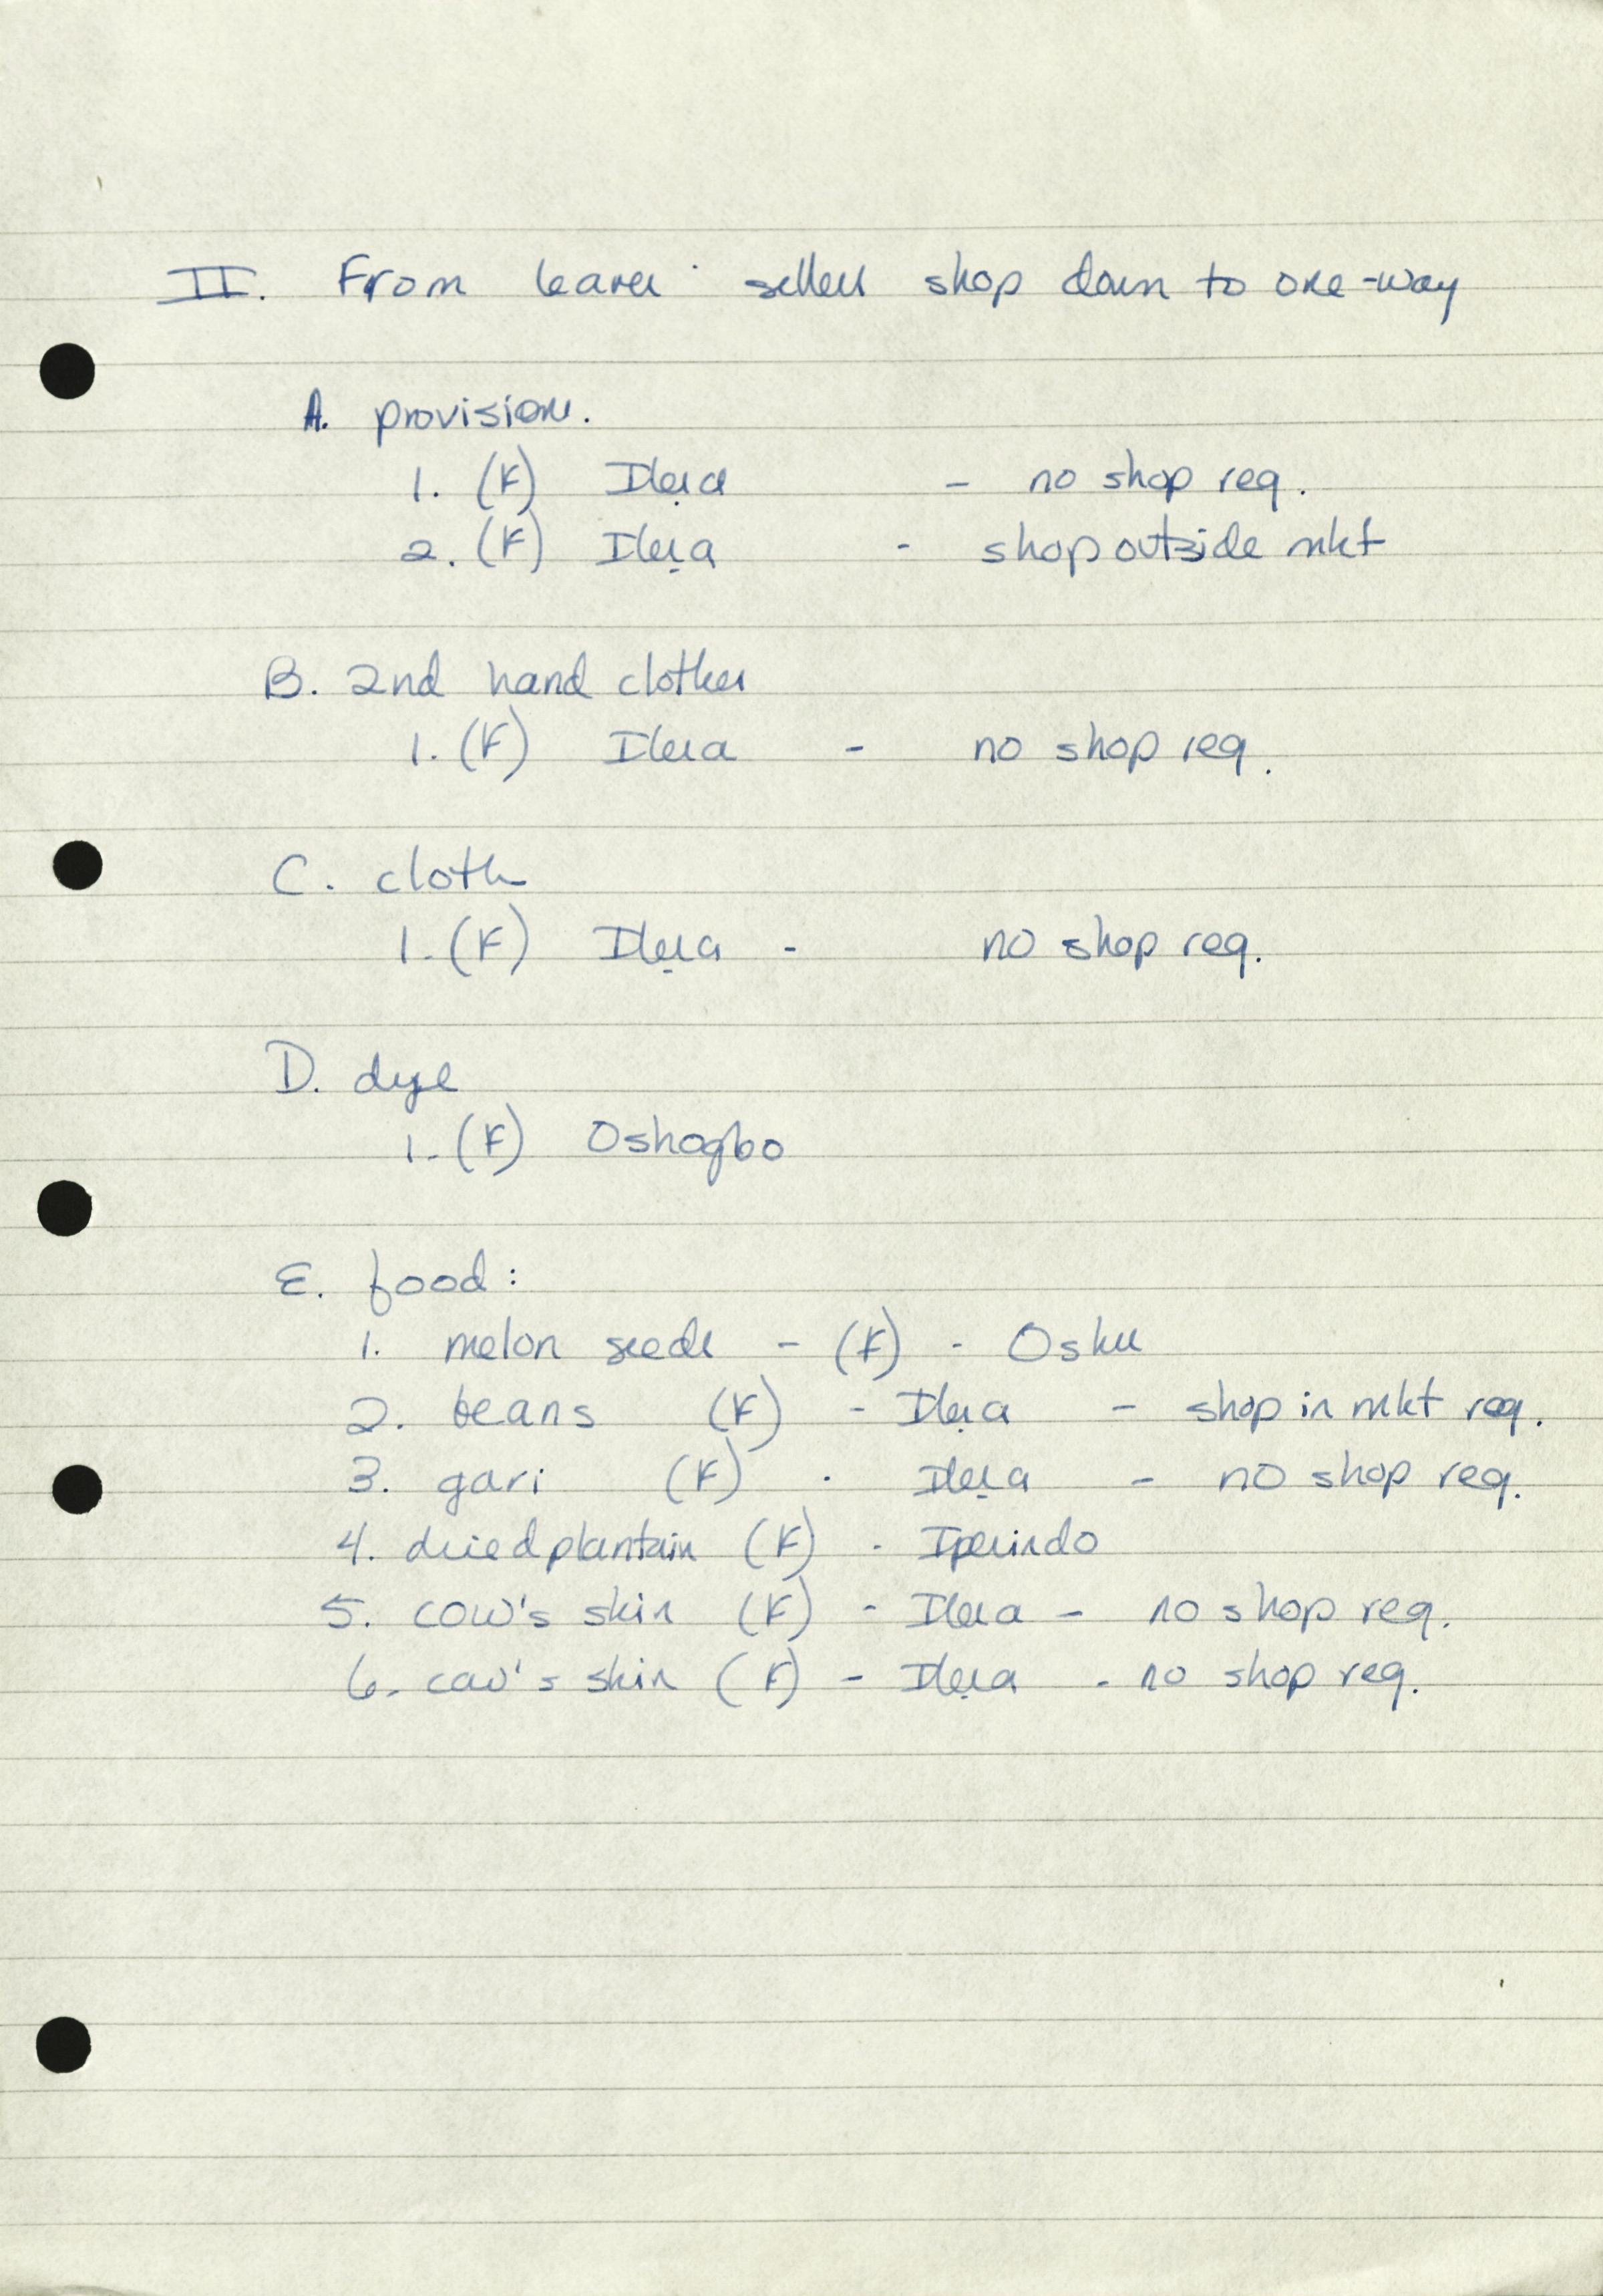 II. From leaves sellers shop down to one-way
A. provisions.
1. (F) Ileṣa - no shop req.
2. (F) Ileṣa - shop outside mkt
B. 2nd hand clothes
1. (F) Ilesa - no shop req.
C. cloth
1. (F) Ileṣa - no shop req.
D. dye
1. (F) Oshogbo
E. food:
1. melon seeds - (F) - Oshu
2. beans (F) - Ileṣa - shop in mkt req.
3. gari (F) - Ileṣa - no shop req.
4. dried plantain (F) - Iperindo
5. cow's skin (F) - Ilesa - no shop req.
6. cow's skin (F) - Ileṣa - no shop req.